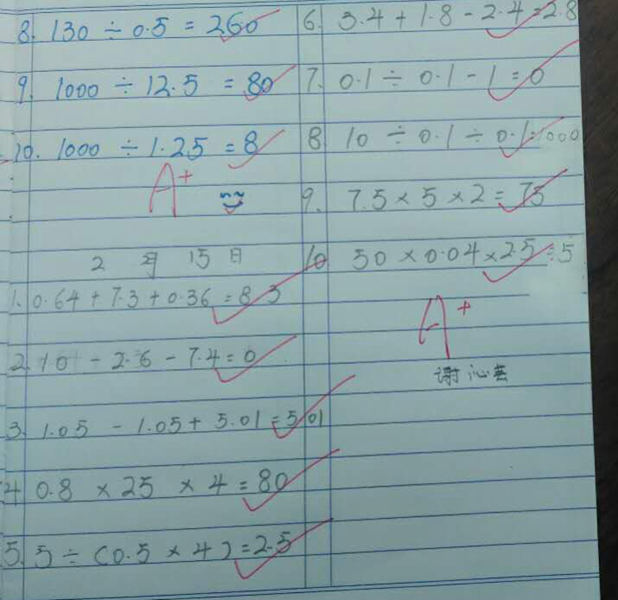 8. 130 ÷ 0.5 = 260
9. 1000 ÷ 12.5 = 80
10. 1000 ÷ 1.25 = 8
A+
2月15日
1. 0.64 + 7.3 + 0.36 = 8.3
2. 10 - 2.6 - 7.4 = 0
3. 1.05 - 1.05 + 5.01 = 5.01
4 0.8 × 25 × 4 = 80
5. 5 ÷ (0.5 × 4) = 2.5
6. 3.4 + 1.8 - 2.4 = 2.8
7. 0.1 ÷ 0.1 - 1 = 0
8 10 ÷ 0.1 ÷ 0.1 = 1000
9. 7.5 × 5 × 2 = 75
10 50 × 0.04 × 25 = 5
A+
谢沁